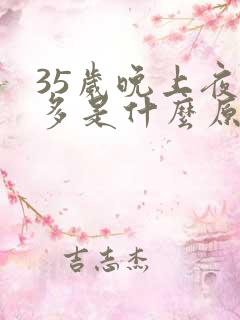 35歲晚上夜
多是什麼原
吉志杰